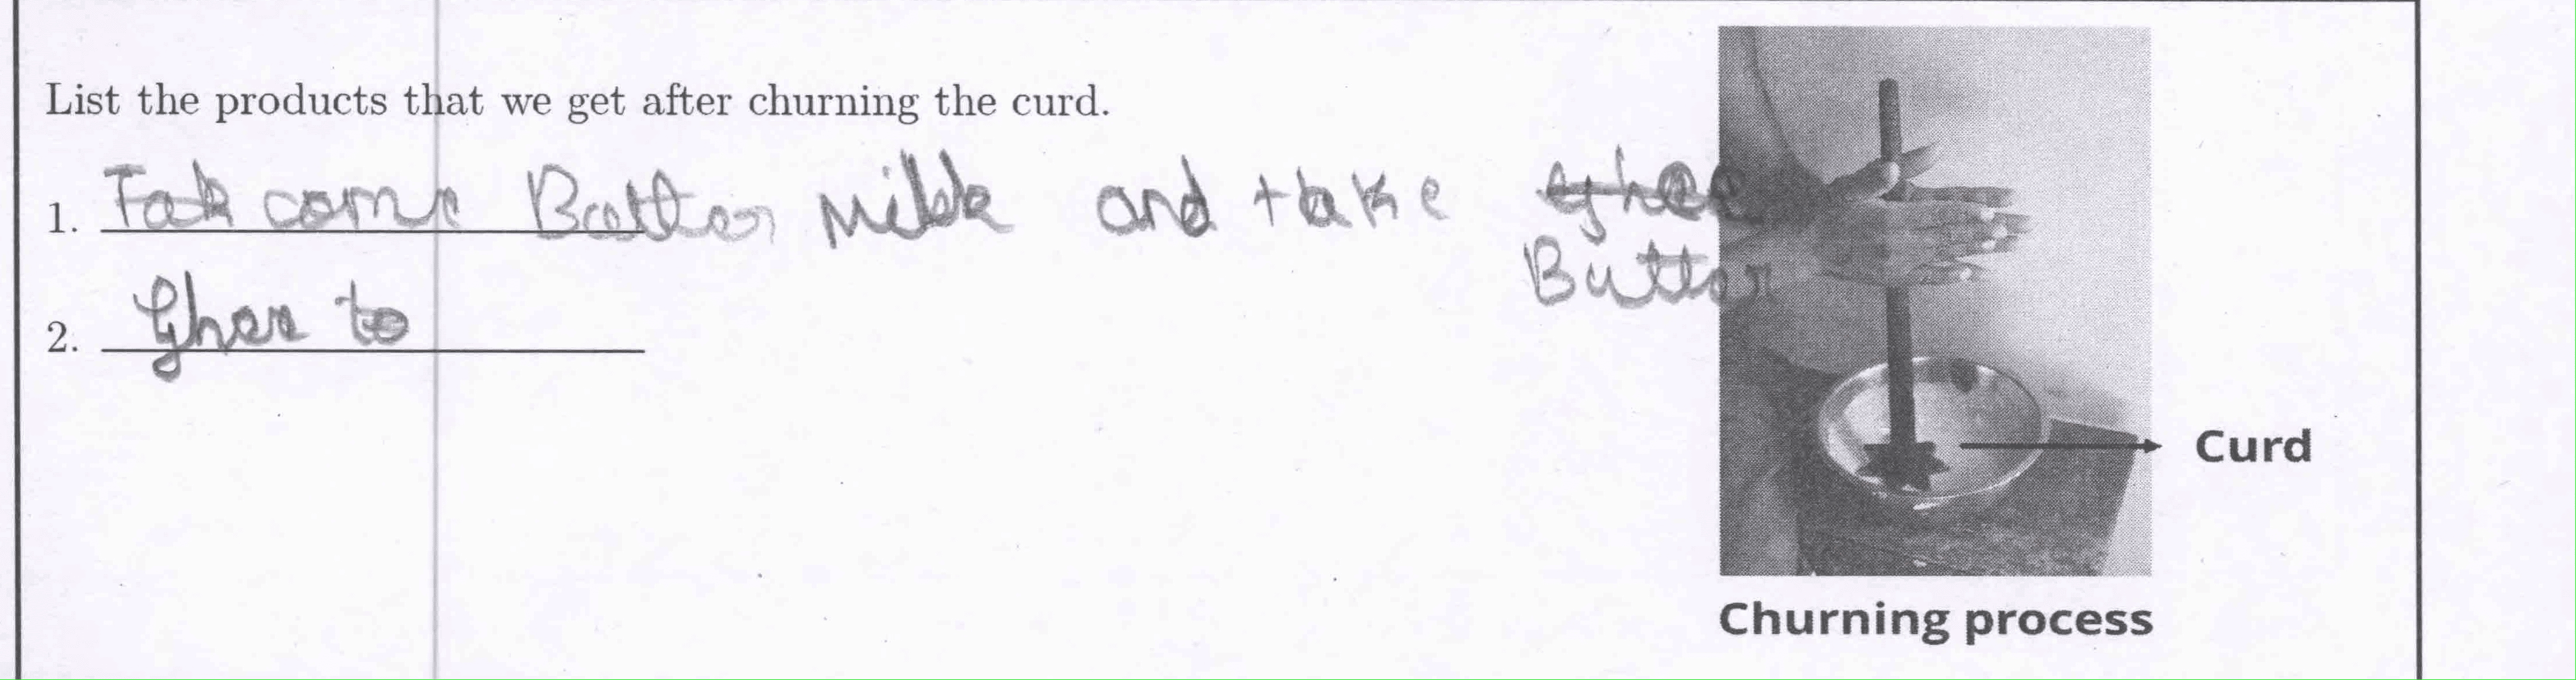 List the products that we get after churning the curd.
1. Tak come Butter Milk and take ghee
Butter
2. Ghee to
Curd
Churning process